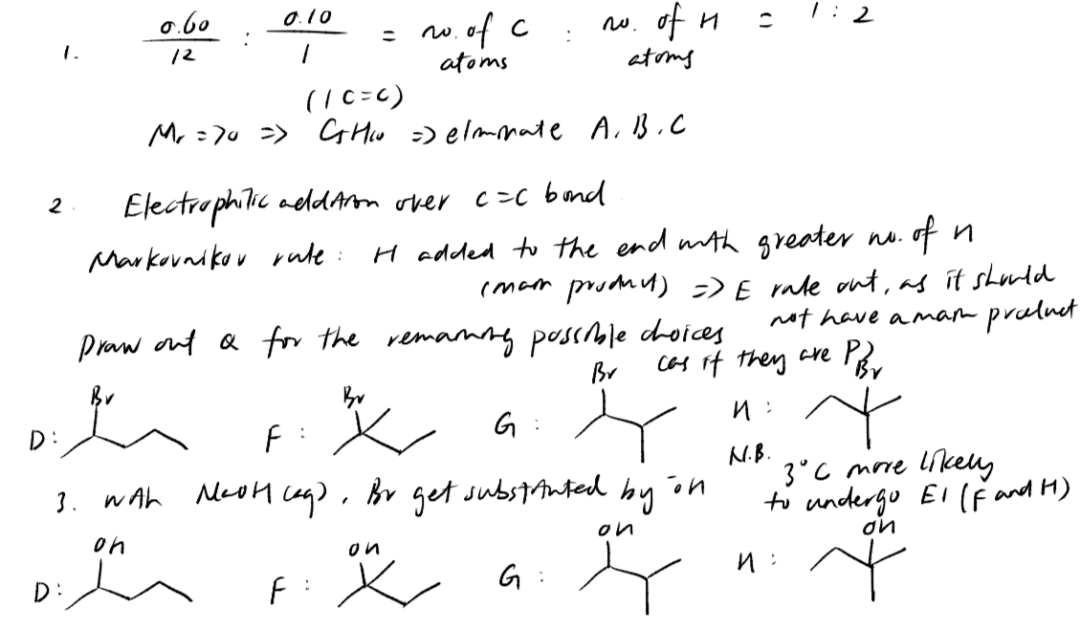 1. 0.60/12 : 0.10/1 = no. of C atoms : no. of H atoms = 1 : 2
(1 C=C)
Mr = 70 => C5H10 => eliminate A, B, C
2. Electrophilic addition over C=C bond
Markovnikov rule : H added to the end with greater no. of H
(main product) => E rule out, as it should
not have a main product
Draw out Q for the remaining possible choices
(as if they are P)
Br Br Br Br
D: F : G : H :
N.B. 3° C more likely
to undergo E1 (F and H)
3. with NaOH (aq), Br get substituted by -OH
OH OH OH OH
D: F : G : H :